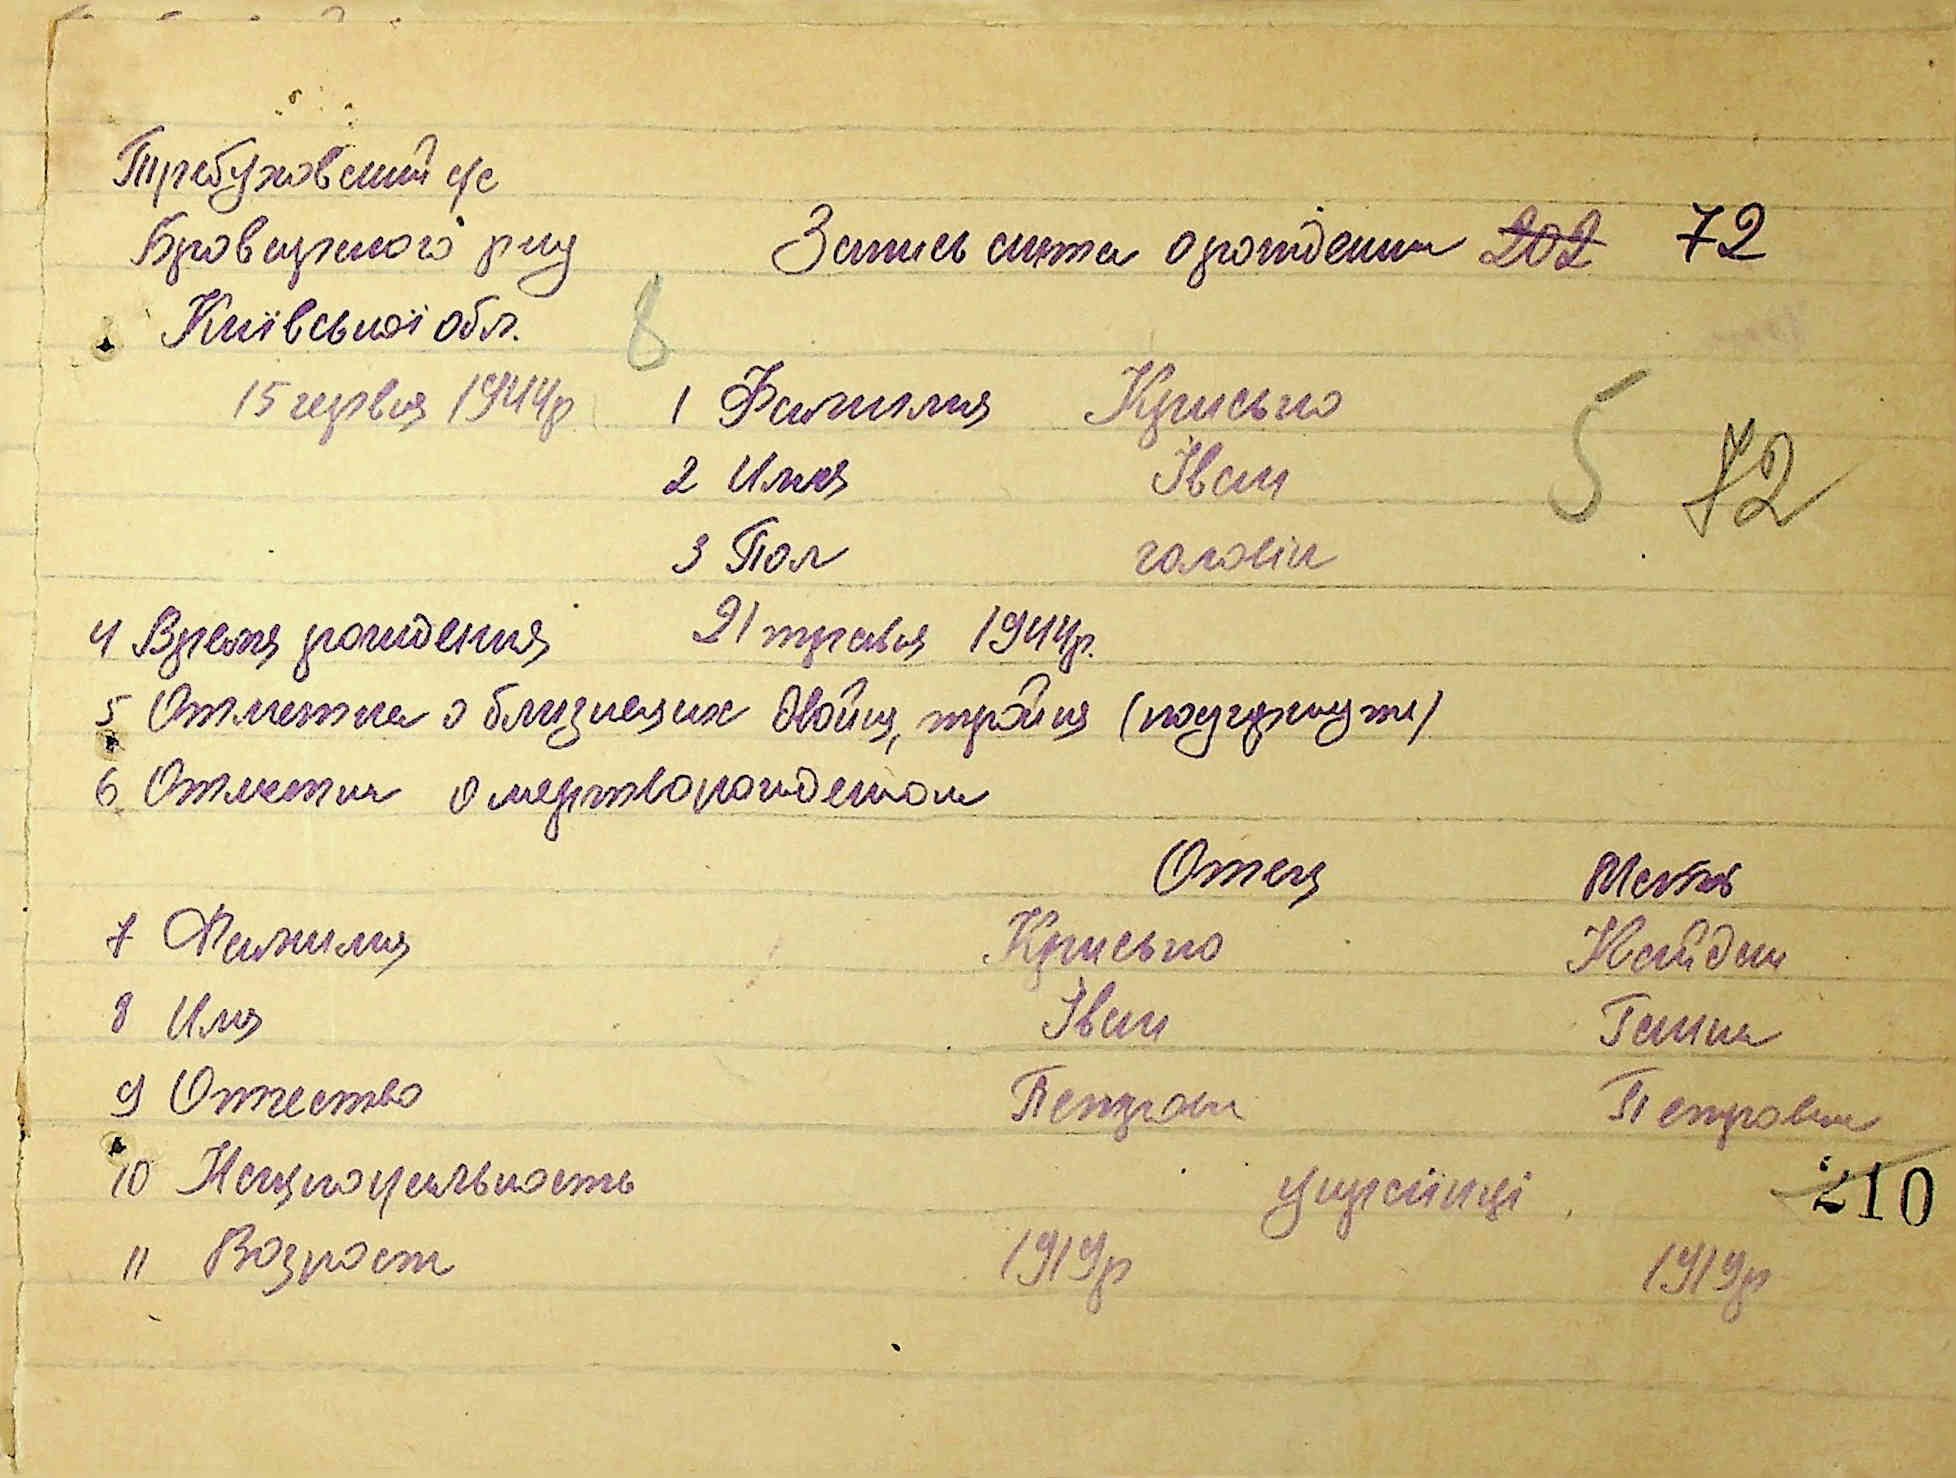 Требуховский с/с
Броварського р-ну Запись акта о рождении 202 72
Київської обл. 8
15 червня 1944р 1 Фамилия Крисько 5 72
2 Имя Іван
3 Пол чоловіч
4 Время рождения 21 травня 1944р.
5 Отметка о близнецах двойня, тройня (подчеркнути)
6 Отметка о мертворожденом
Отец Мать
7 Фамилия Крисько Найден
8 Имя Іван Ганна
9 Отчество Петрович Петровна
10 Национальность українці 210
11 Возраст 1919р 1919р